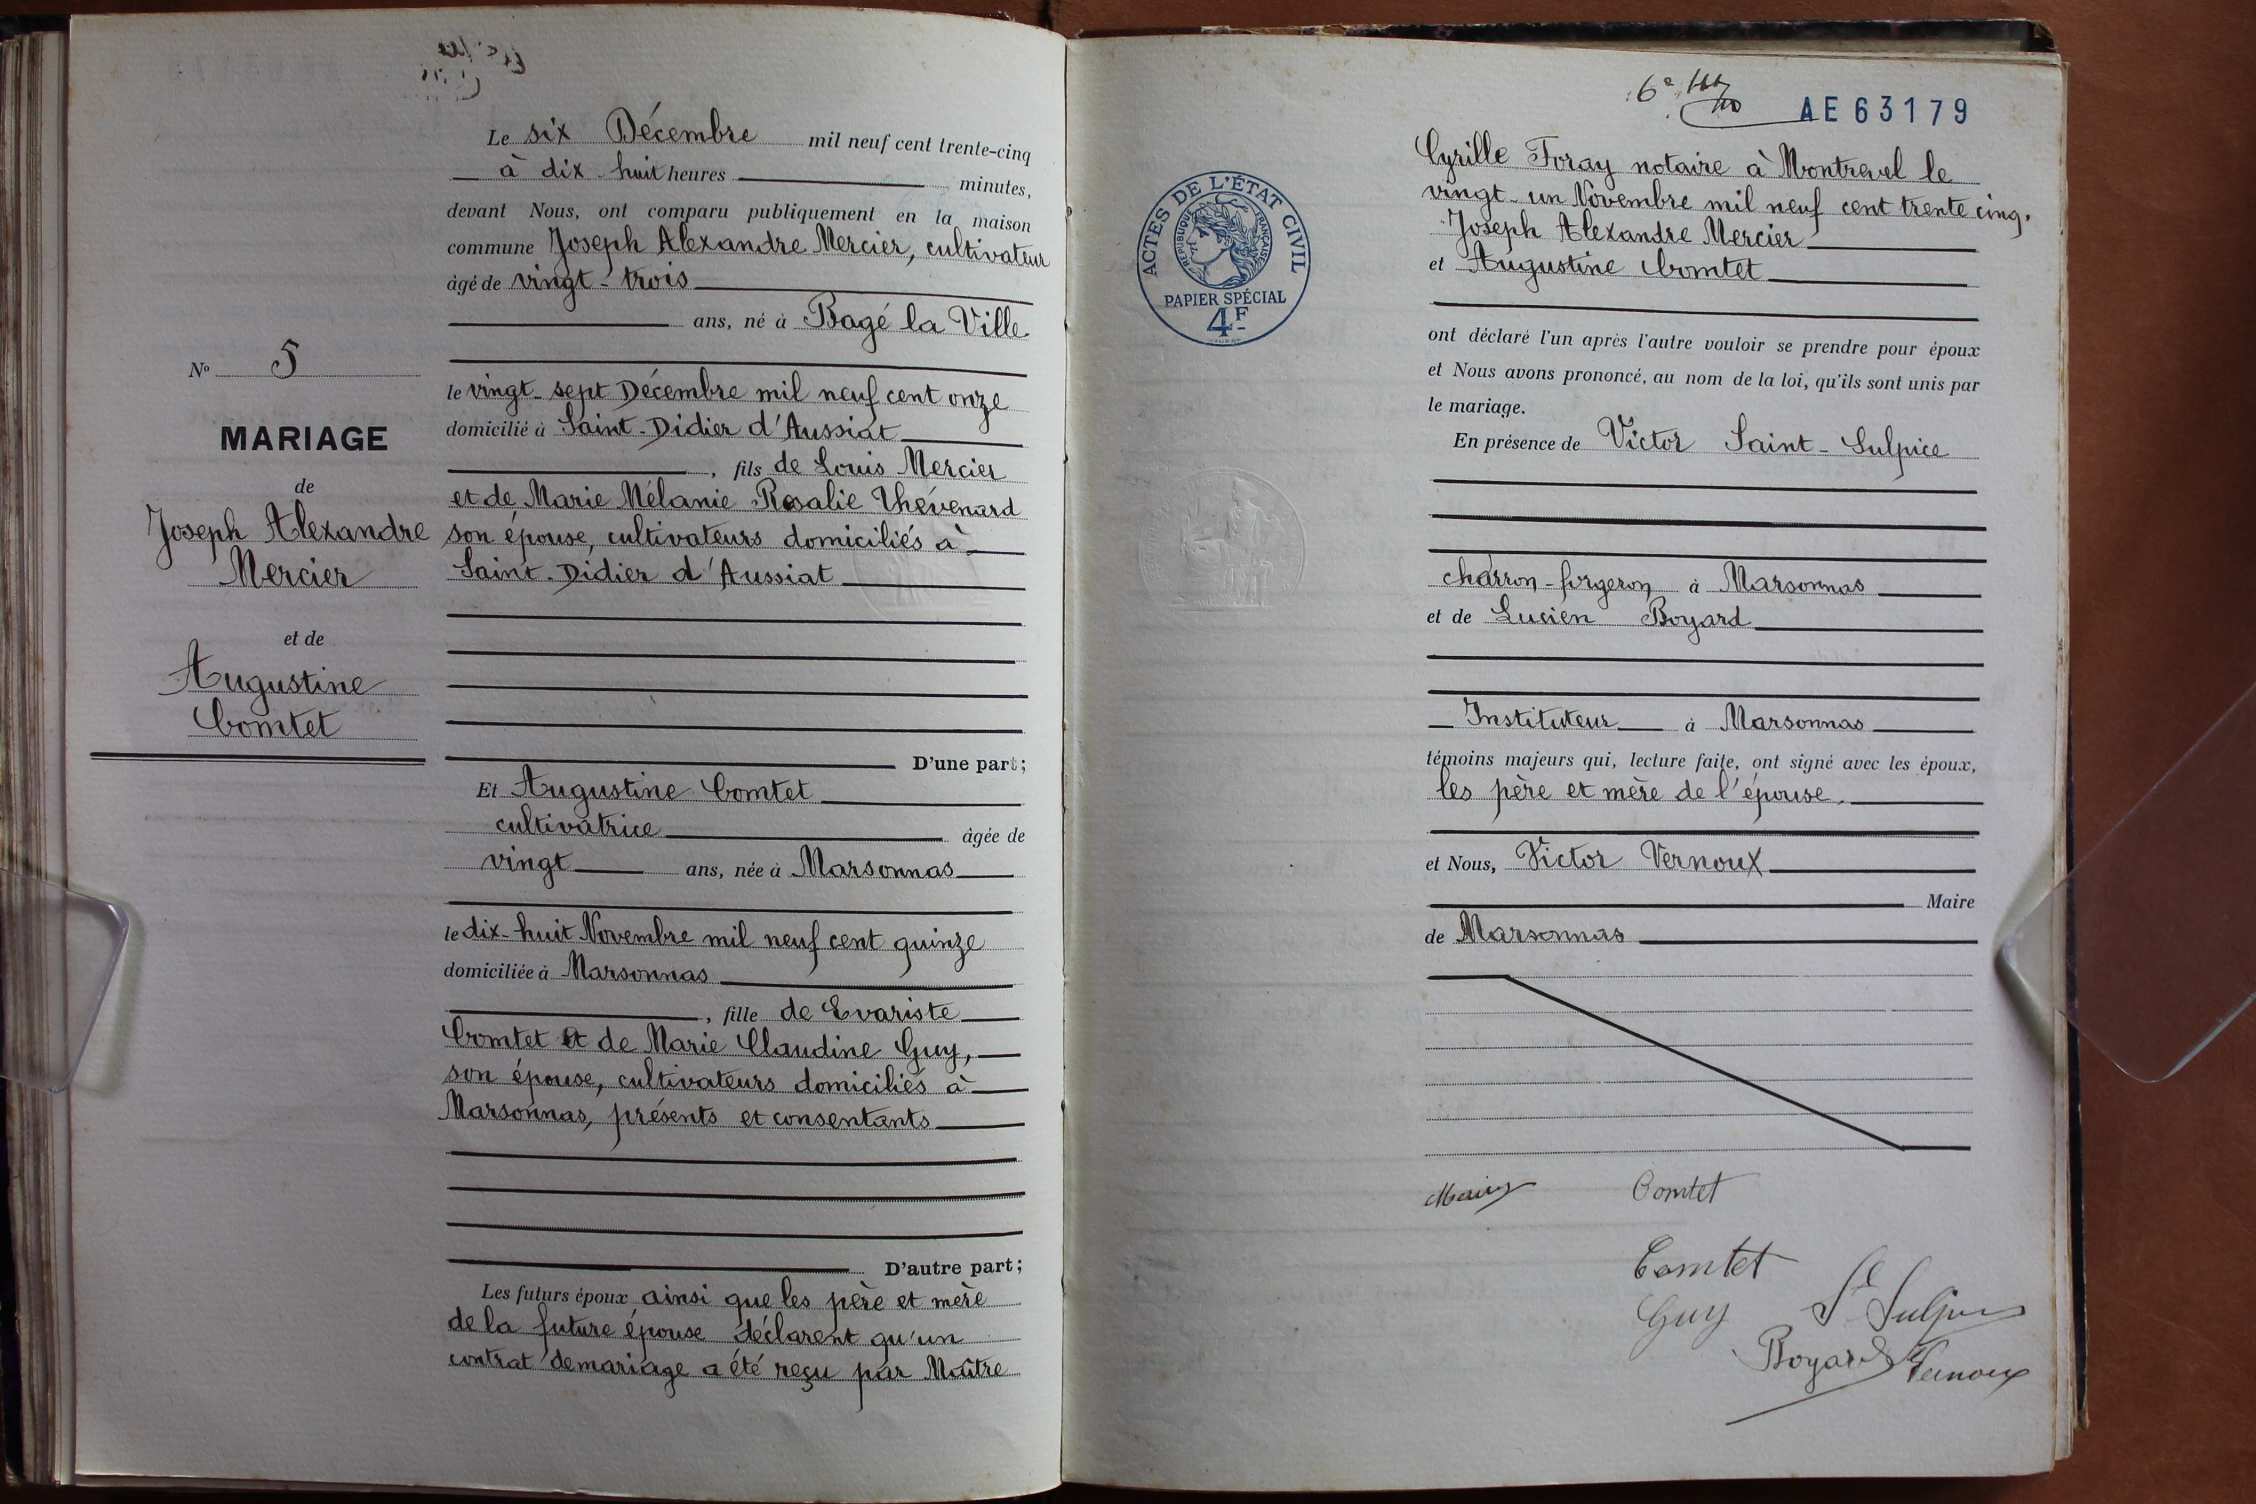 Le six Décembre mil neuf cent trente-cinq
à dix-huit heures minutes,
devant Nous, ont comparu publiquement en la maison
commune Joseph Alexandre Mercier, cultivateur
âgé de vingt-trois
ans, né à Bagé la Ville
le vingt-sept Décembre mil neuf cent onze
domicilié à Saint-Didier d'Aussiat
, fils de Louis Mercier
et de Marie Mélanie Rosalie Thévenard
son épouse, cultivateurs domiciliés à
Saint-Didier d'Aussiat
D'une part;
Et Augustine Comtet
cultivatrice âgée de
vingt ans, née à Marsonnas
le dix-huit Novembre mil neuf cent quinze
domiciliée à Marsonnas
, fille de Evariste
Comtet et de Marie Claudine Guy,
son épouse, cultivateurs domiciliés à
Marsonnas, présents et consentants
D'autre part;
Les futurs époux ainsi que les père et mère
de la future épouse déclarent qu'un
contrat de mariage a été reçu par Maître
No 5
MARIAGE
de
Joseph Alexandre
Mercier
et de
Augustine
Comtet
6e
AE 63179
ACTES DE L'ÉTAT CIVIL
RÉPUBLIQUE FRANÇAISE
PAPIER SPÉCIAL
4F
Cyrille Foray notaire à Montrevel le
vingt-un Novembre mil neuf cent trente cinq.
Joseph Alexandre Mercier
et Augustine Comtet
ont déclaré l'un après l'autre vouloir se prendre pour époux
et Nous avons prononcé, au nom de la loi, qu'ils sont unis par
le mariage.
En présence de Victor Saint-Sulpice
charron-forgeron à Marsonnas
et de Lucien Boyard
Instituteur à Marsonnas
témoins majeurs qui, lecture faite, ont signé avec les époux,
les père et mère de l'épouse.
et Nous, Victor Vernoux
Maire
de Marsonnas
Mercier Comtet
Comtet
Guy St Sulpice
Boyard Vernoux